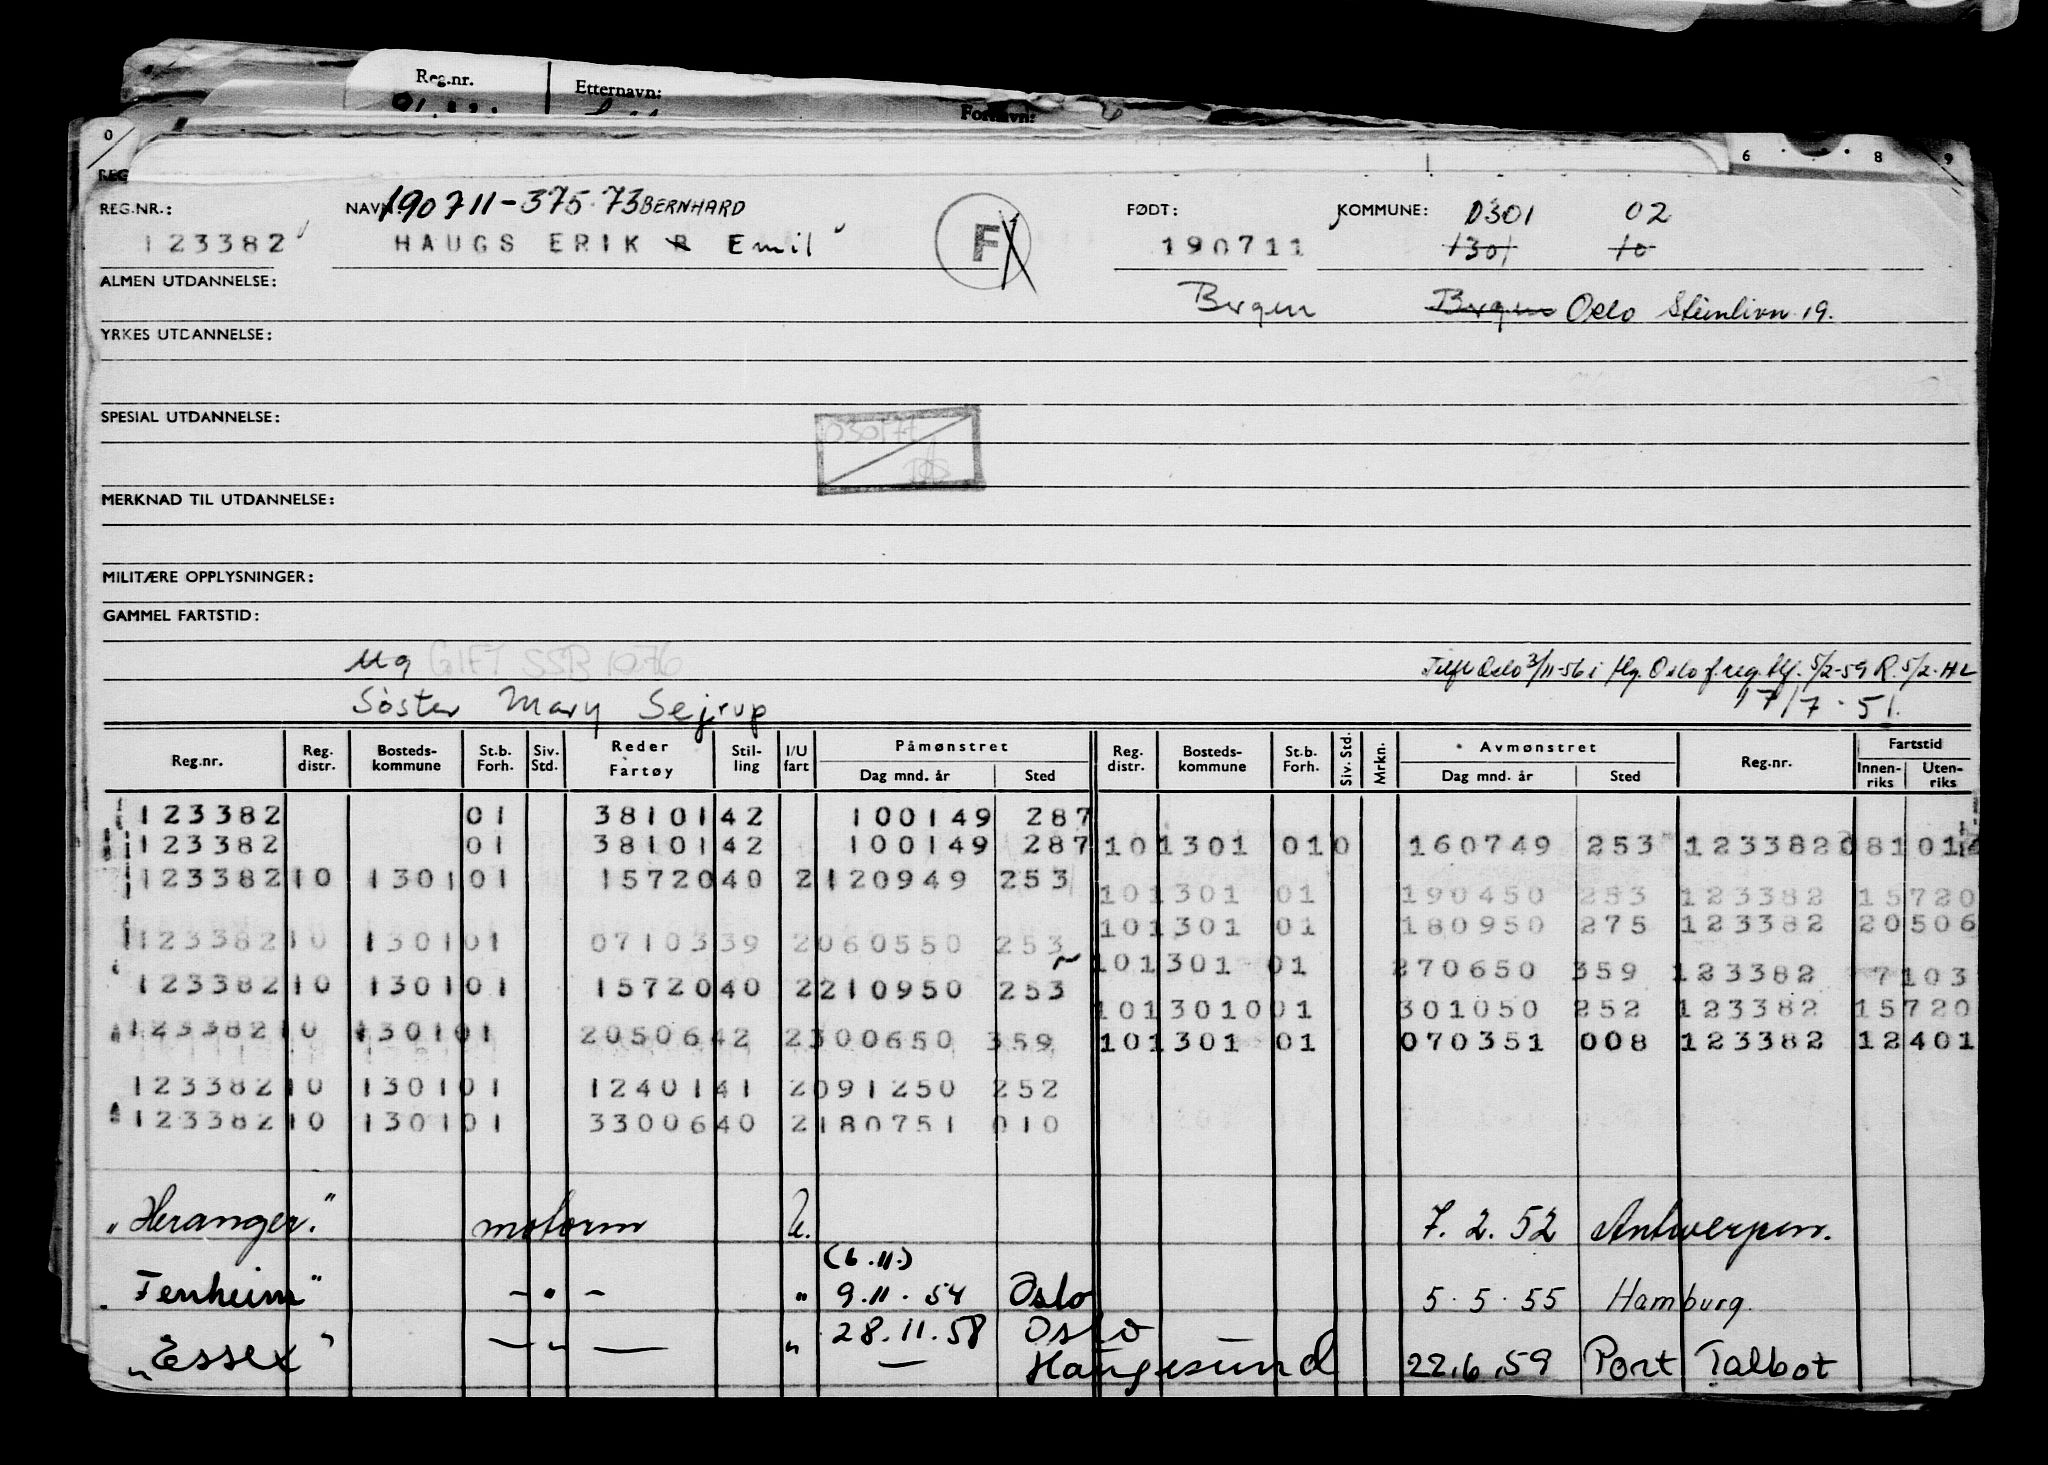 Reg.nr. Etternavn:
Fornavn:
0 6 8 9
REG
REG.NR.: NAVN 190711-375-73 BERNHARD FØDT: KOMMUNE: 0301 02
123382 HAUGS ERIK B Emil F 190711 1301 10
ALMEN UTDANNELSE: Bergen Bergen Oslo Steinlivn 19.
YRKES UTDANNELSE:
SPESIAL UTDANNELSE:
030177
MERKNAD TIL UTDANNELSE:
MILITÆRE OPPLYSNINGER:
GAMMEL FARTSTID:
Ug GIFT SSB 1076 Tilfl Oslo 3/11-56 i Hg. Oslo f. reg. flf. 5/2-59 R. 5/2. HL
Söster Mary Sejrup 17/7-51.
Reg.nr. Reg. distr. Bosteds-kommune St.b. Forh. Siv. Std. Reder Fartøy Stil-ling I/U fart Påmønstret Reg. distr. Bosteds-kommune St.b. Forh. Siv. Std. Mrkn. Avmønstret Reg.nr. Fartstid
Dag mnd. år Sted Dag mnd. år Sted Innen-riks Uten-riks
123382 01 38101 42 100149 287
123382 01 38101 42 100149 287 10 1301 01 0 160749 253 123382 08101
123382 10 1301 01 15720 40 2 120949 253
10 1301 01 190450 253 123382 15720
10 1301 01 180950 275 123382 20506
123382 10 1301 01 07103 39 2 060550 253
10 1301 01 270650 359 123382 7103
123382 10 1301 01 15720 40 2 210950 253
10 1301 0 01 301050 252 123382 15720
123382 10 1301 01 20506 42 2 300650 359 10 1301 01 070351 008 123382 12401
123382 10 1301 01 12401 41 2 091250 252
123382 10 1301 01 33006 40 2 180751 010
"Heranger." motorm U. 7.2.52 Antwerpen.
(6.11.)
"Fernheim" - " - " 9.11.54 Oslo 5.5.55 Hamburg.
28.11.58 Oslo
"Essex" - " - " — Haugesund 22.6.59 Port Talbot